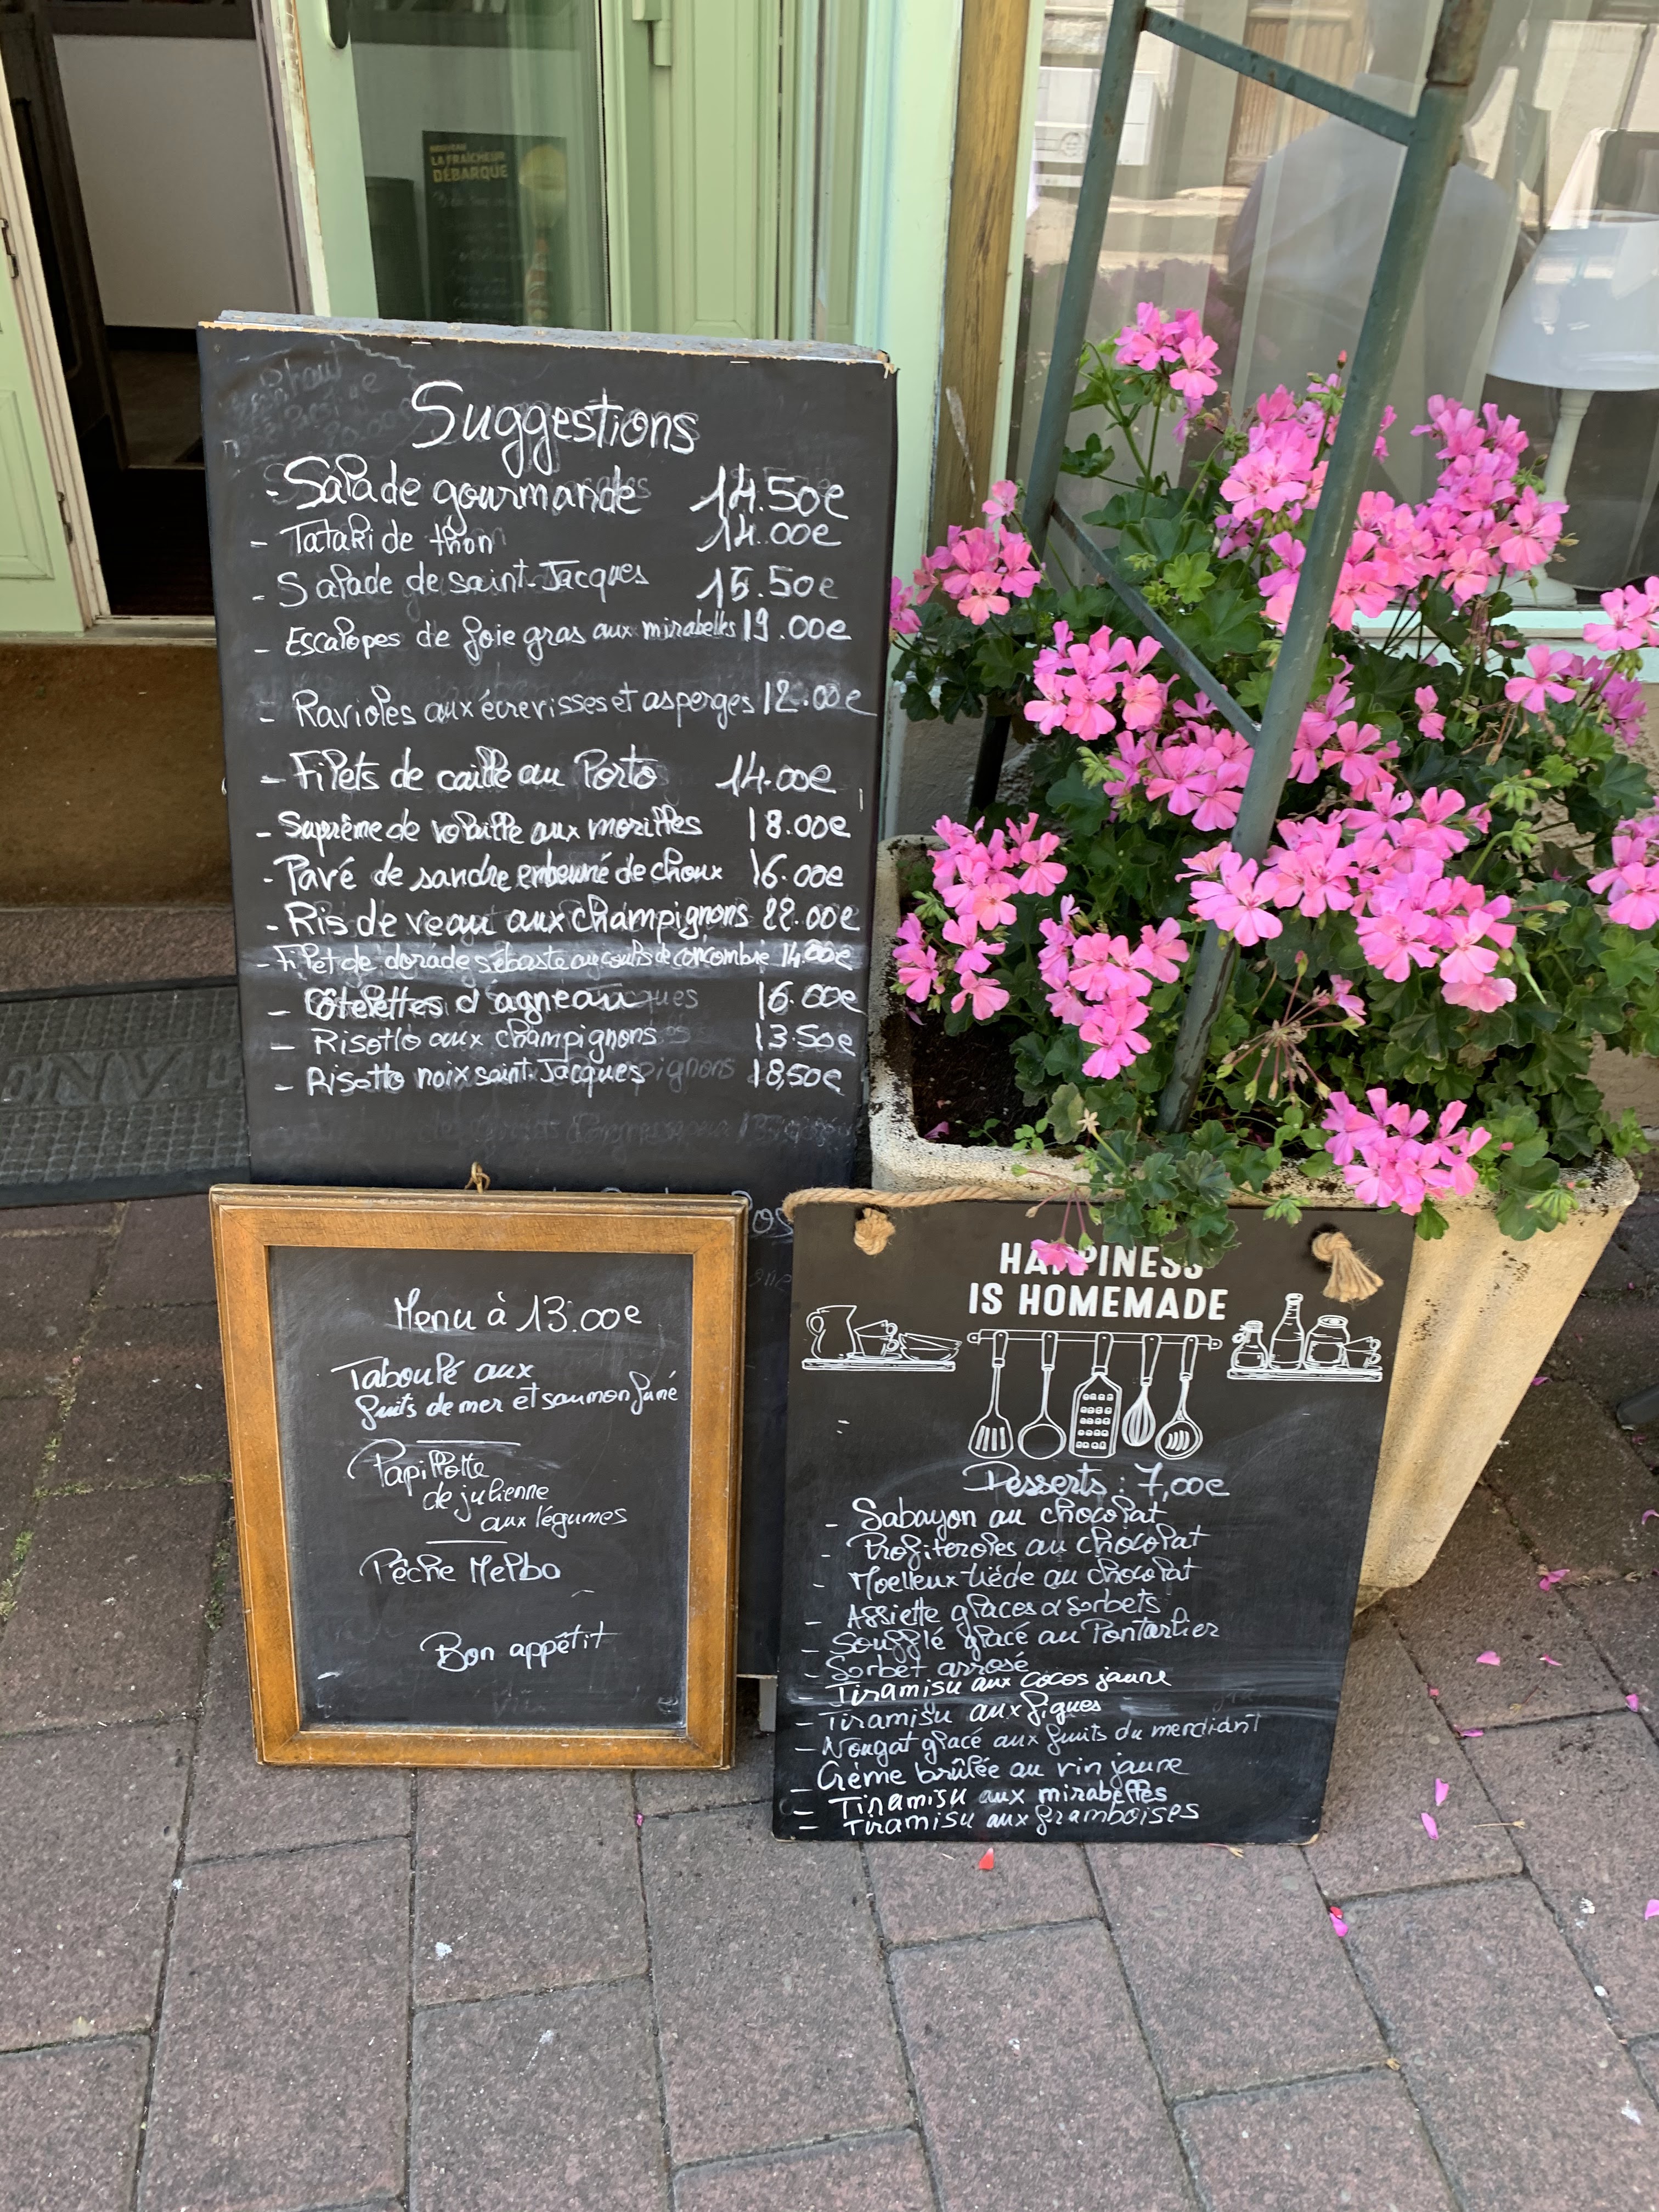 NOUVEAU
LA FRAÎCHEUR
DÉBARQUE
Suggestions
- Salade gourmande 14.50€
- Tataki de thon 14.00€
- Salade de saint Jacques 15.50€
- Escalopes de foie gras aux mirabelles 19.00€
- Ravioles aux écrevisses et asperges 12.00€
- Filets de caille au Porto 14.00€
- Suprême de volaille aux morilles 18.00€
- Pavé de sandre de choux 16.00€
- Ris de veau aux champignons 22.00€
- Filet de dorade sébaste au coulis de concombre 14.00€
- Côtelettes d'agneau 16.00€
- Risotto aux champignons 13.50€
- Risotto noix saint Jacques 18,50€
Menu à 13.00€
Taboulé aux
fruits de mer et saumon fumé
Papillotte
de julienne
aux légumes
Pêche Melba
Bon appêtit
HAPPINESS
IS HOMEMADE
Desserts : 7,00€
- Sabayon au chocolat
- Profiteroles au chocolat
- Moelleux tiède au chocolat
- Assiette glaces & sorbets
- Soufflé glacé au Pontarlier
- Sorbet arrosé
- Tiramisu aux cocos jaune
- Tiramisu aux figues
- Nougat glacé aux fruits du mendiant
- Crème brûlée au vin jaune
- Tiramisu aux mirabelles
- Tiramisu aux framboises